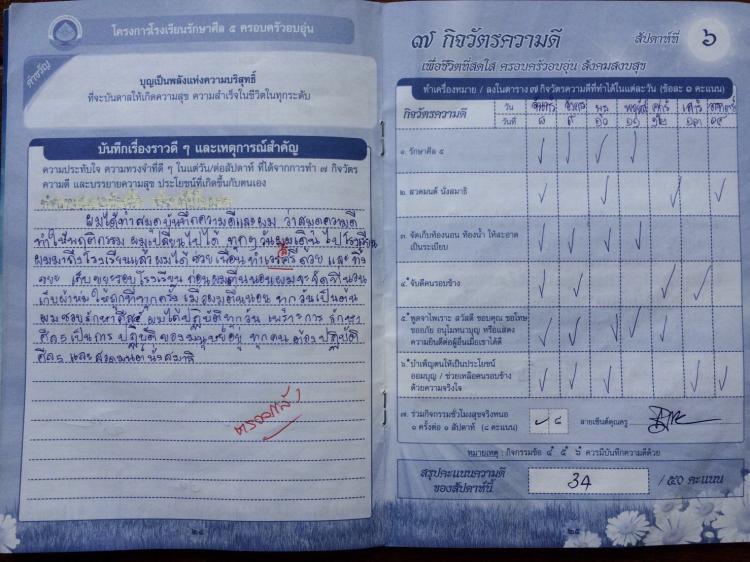 โครงการโรงเรียนรักษาศีล ๕ ครอบครัวอบอุ่น
คำขวัญ
บุญเป็นพลังแห่งความบริสุทธิ์
ที่จะบันดาลให้เกิดความสุข ความสำเร็จในชีวิตในทุกระดับ
บันทึกเรื่องราวดี ๆ และเหตุการณ์สำคัญ
ความประทับใจ ความทรงจำที่ดี ๆ ในแต่วัน/ต่อสัปดาห์ ที่ได้จากการทำ ๗ กิจวัตร
ความดี และบรรยายความสุข ประโยชน์ที่เกิดขึ้นกับตนเอง
ผมได้ทำสมุดบันทึกความดีและผม ว่าสมุดความดี
ทำให้พฤติกรรม ผมเปลี่ยนไปได้ ทุกๆวันผมเดินไปโรงเรียน
ผมมาถึงโรงเรียนแล้วผมได้ช่วยเพื่อนทำเวร ด้วย และทิ้ง
ขยะ เก็บขยะรอบโรงเรียน ก่อนผมตื่นนอนผมจะจัดที่นอน
เก็บผ้าห่ม ให้ถูกที่ทุกครั้ง เมื่อผมตื่นนอน ทุกวันเป็นต้น
ผมชอบรักษาศีล๕ ผมได้ปฏิบัติทุกวัน เพราะการ รักษา
ศีล๕เป็นการ ปฏิบัติ ของมนุษย์ ทุกคน ต้องปฏิบัติ
ศีล๕ และสวดมนต์นั่งสมาธิ
ตรวจแล้ว
๒๔
๗ กิจวัตรความดี สัปดาห์ที่ ๖
เพื่อชีวิตที่สดใส ครอบครัวอบอุ่น สังคมสงบสุข
ทำเครื่องหมาย / ลงในตาราง ๗ กิจวัตรความดีที่ทำได้ในแต่ละวัน (ข้อละ ๑ คะแนน)
กิจวัตรความดี วัน จันทร์ อังคาร พุธ พฤหัส ศุกร์ เสาร์ อาทิตย์
วันที่ ๘ ๙ ๑๐ ๑๑ ๑๒ ๑๓ ๑๔
๑. รักษาศีล ๕
๒. สวดมนต์ นั่งสมาธิ
๓. จัดเก็บห้องนอน ห้องน้ำ ให้สะอาด
เป็นระเบียบ
๔. จับดีคนรอบข้าง
๕. พูดจาไพเราะ สวัสดี ขอบคุณ ขอโทษ
ขออภัย อนุโมทนาบุญ หรือแสดง
ความยินดีต่อผู้อื่นเมื่อเราได้ดี
๖. บำเพ็ญตนให้เป็นประโยชน์
ออมบุญ / ช่วยเหลือคนรอบข้าง
ด้วยความจริงใจ
๗. ร่วมกิจกรรมชั่วโมงสุขจริงหนอ
๑ ครั้งต่อ ๑ สัปดาห์ (๘ คะแนน) ๘ ลายเซ็นต์คุณครู
หมายเหตุ : กิจกรรมข้อ ๔ ๕ ๖ ควรมีบันทึกความดีด้วย
สรุปคะแนนความดี
ของสัปดาห์นี้ 34 / ๕๐ คะแนน
๒๕